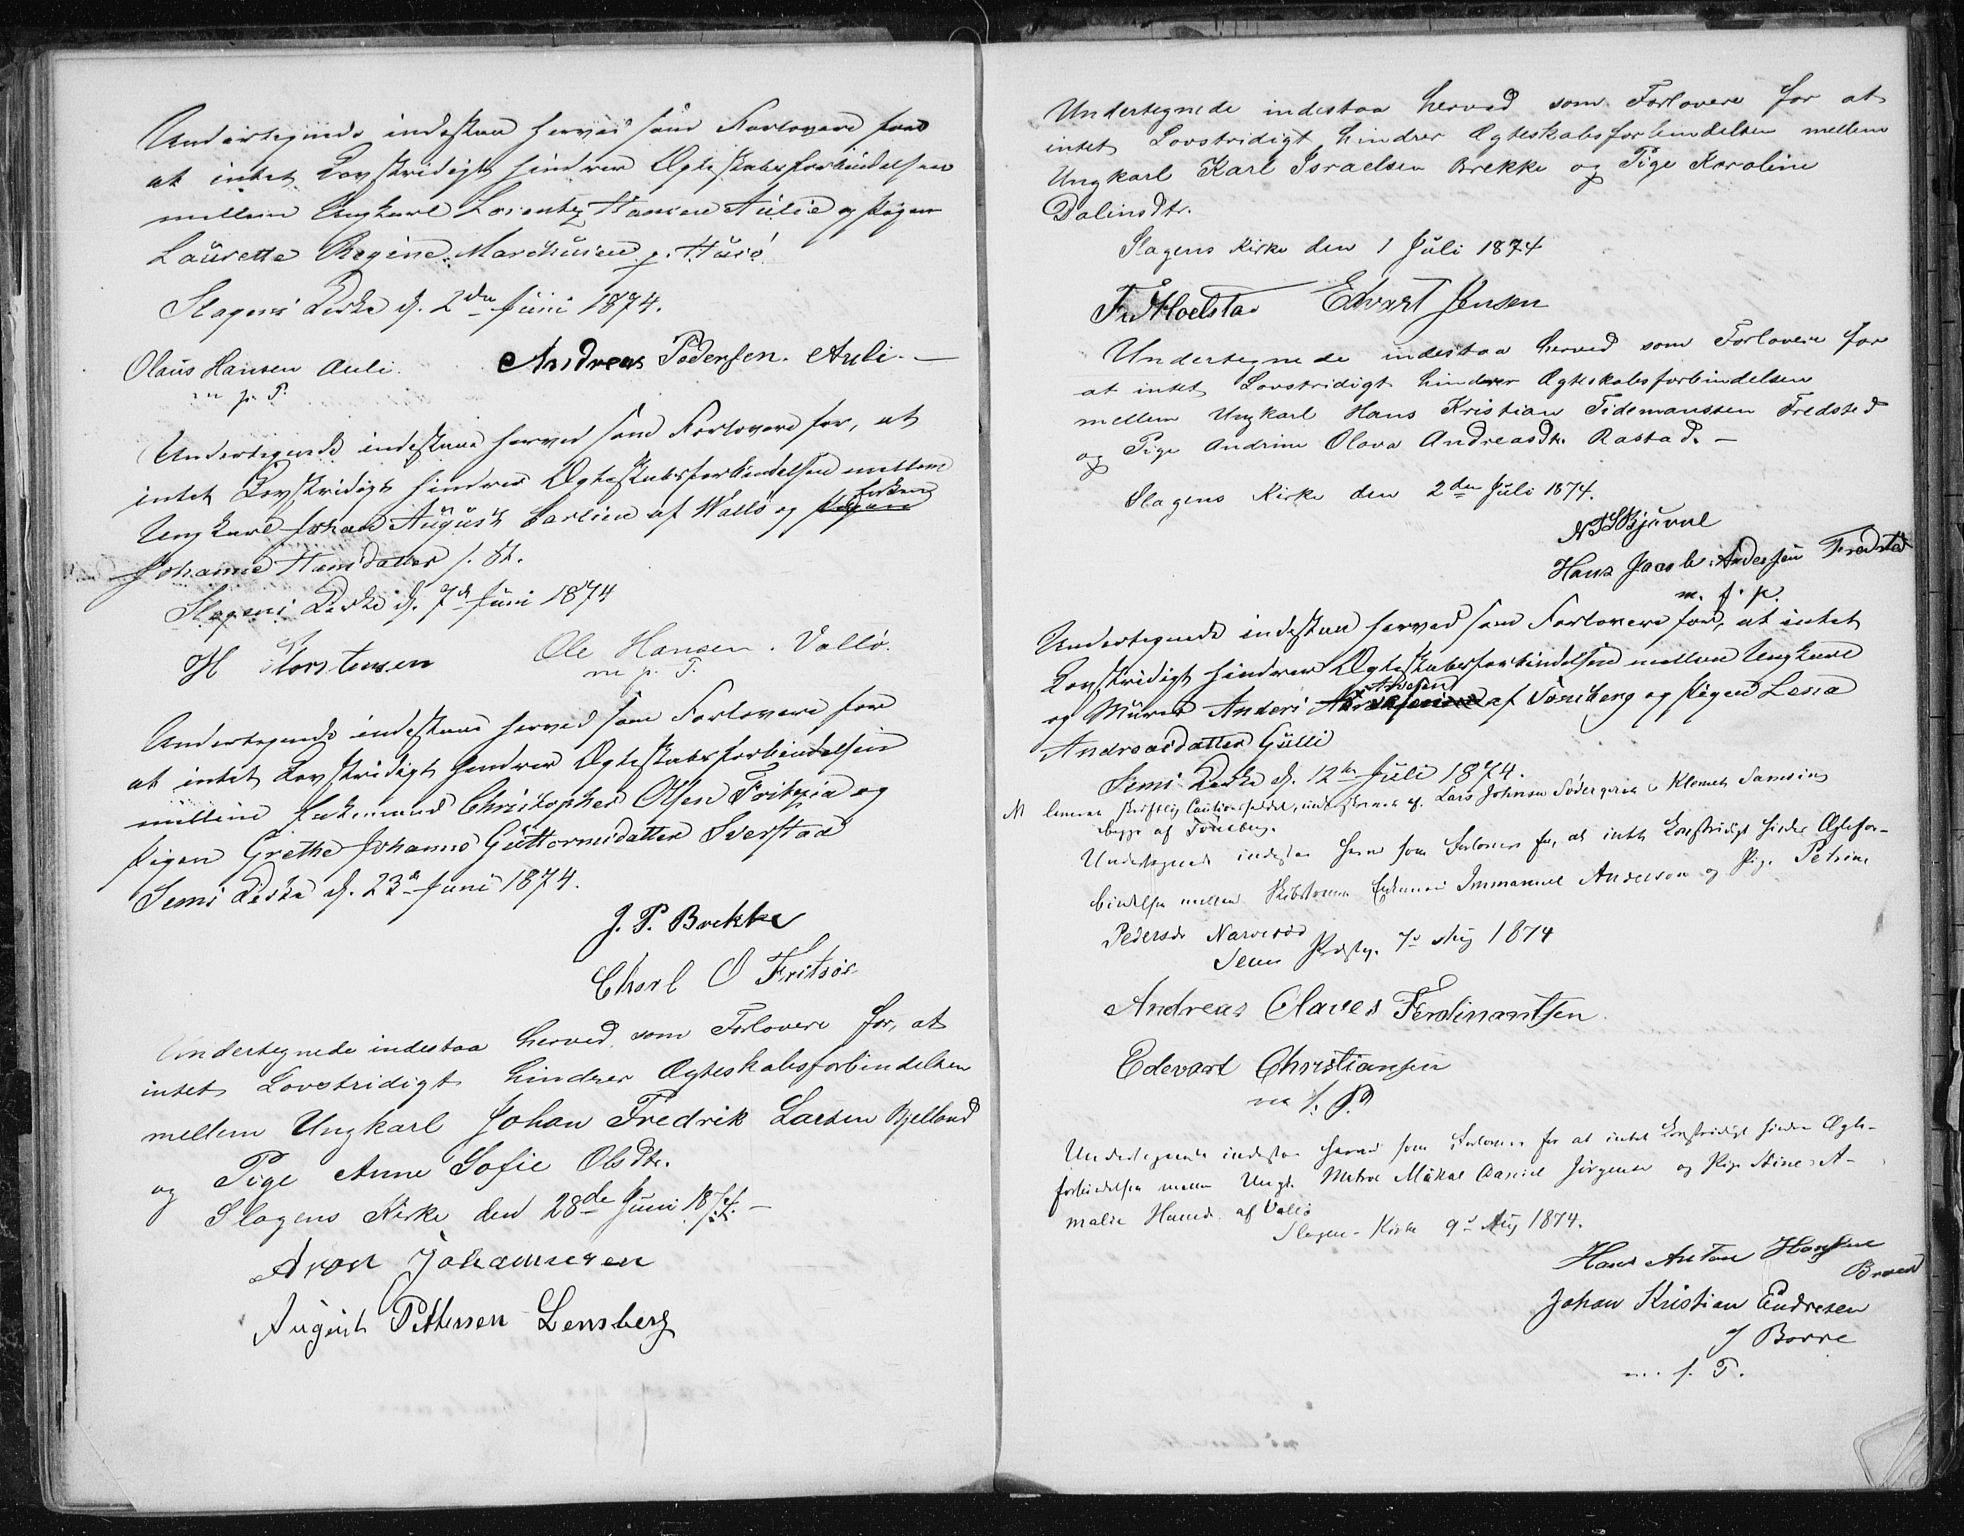 Undertegnede indestaa herved som Forlovere for
at intet Lovstridigt hindrer Ægteskabsforbindelsen
mellem Ungkarl Lorentz Hansen Aulie og Pigen
Laurette Regine Marchusen p. Husö
Slagens Kirke d. 2den Juni 1874.
Olaus Hansen Auli Andreas Pedersen. Auli. —
m p. P.
Undertegnede indestaa herved som Forlovere for, at
intet Lovstridigt hindrer Ægteskabsforbindelsen mellem
Ungkarl Johan August Carlsen af Vallö og Pigen
Johanne Hansdatter
Slagens Kirke d. 7de Juni 1874
H Torstensen Ole Hansen. Vallö.
m p. P.
Undertegnede indestaa herved som Forlovere for
at intet Lovstridigt hindrer Ægteskabsforbindelsen
mellem Enkemand Christopher Olsen Fritzöe og
Pigen Grethe Johanne Guttormsdatter Sverstad
Sems Kirke d. 23de Juni 1874.
J. P. Brekke
Charl O Fritsöe
Undertegnede indestaa herved som Forlovere for, at
intet Lovstridigt hindrer Ægteskabsforbindelsen
mellem Ungkarl Johan Fredrik Larsen Bjelland
og Pige Anne Sofie Olsdtr.
Slagens Kirke den 28de Juni 1874. —
Aron Johannesen
August Pettersen Lensberg
Undertegnede indestaa herved som Forlovere for at
intet Lovstridigt hindrer Ægteskabsforbindelsen mellem
Ungkarl Karl Israelsen Brekke og Pige Karoline
Dalinsdtr.
Slagens Kirke den 1 Juli 1874
Edvart Jensen
Undertegnede indestaa herved som Forlovere for
at intet Lovstridigt hindrer Ægteskabsforbindelsen
mellem Ungkarl Hans Kristian Tidemanssen Fredsted
og Pige Andrine Olava Andreasdtr. Rastad. —
Slagens Kirke den 2den Juli 1874.
Hans Jacob Andersen Fredsted
m. f. p.
Undertegnede indestaa herved som Forlovere for, at intet
Lovstridigt hindrer Ægteskabsforbindelsen mellem Ungkarl
og Murer Anders af Tönsberg og Pigen Lena
Andreasdatter Gulli
Sems Kirke d. 12te Juli 1874.
skriftlig af Lars Johnsen Södergaren & Klemet Samsing
begge af Tönsberg.
Undertegnede indestaa herved som Forlovere for, at intet Lovstridigt hindrer Ægtefor-
bindelse mellem Enkemand Immanuel Anderson og Pige Petrine
Pedersdr Narverød
Sems Præstg. 7de Aug 1874
Andreas Olaves Ferdinantsen.
Edevart Christiansen
m f. P.
Undertegnede indestaa herved som Forlovere for at intet Lovstridigt hindrer Ægte-
forbindelsen mellem Ungk. Matros Mikal Daniel Jörgensen og Pige Stine A-
malie Hansd. af Vallö
Slagens Kirke 9de Aug 1874.
Hans Anton Hansen
Johan Kristian Endresen
Borre
m. f. P.